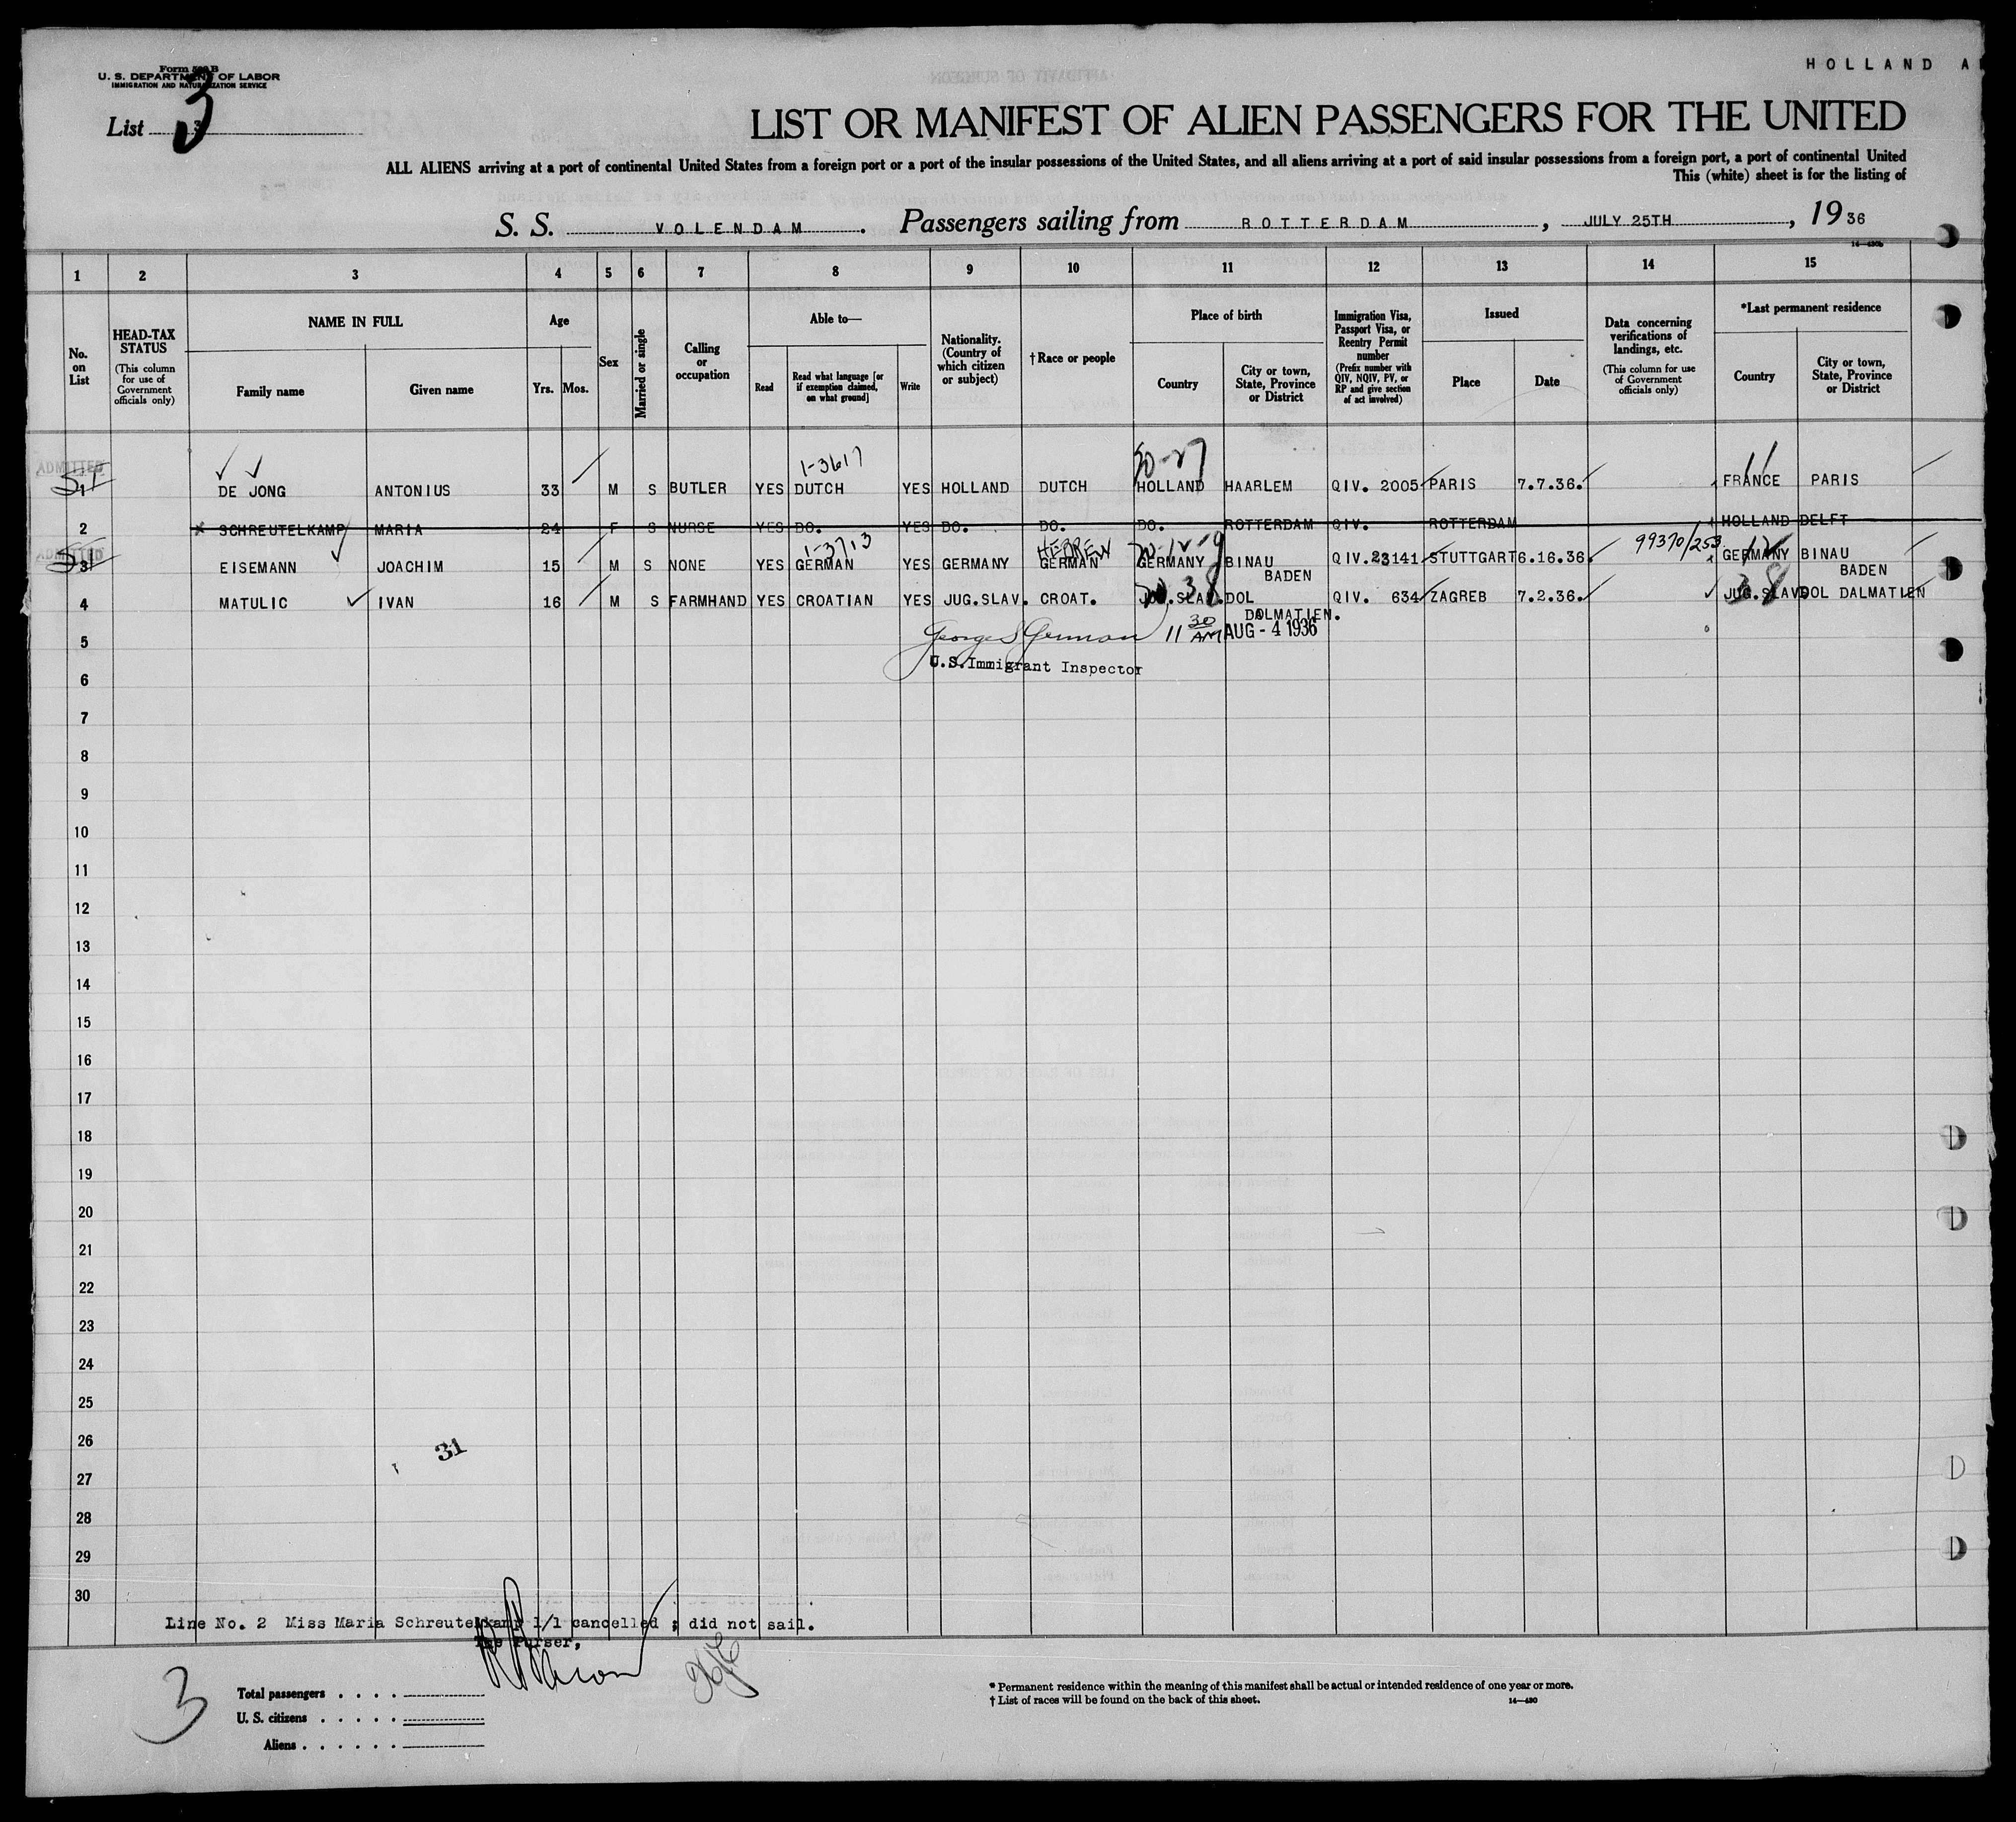 HOLLAND A
Form 500 B
U. S. DEPARTMENT OF LABOR
IMMIGRATION AND NATURALIZATION SERVICE
List 3
3
LIST OR MANIFEST OF ALIEN PASSENGERS FOR THE UNITED
ALL ALIENS arriving at a port of continental United States from a foreign port or a port of the insular possessions of the United States, and all aliens arriving at a port of said insular possessions from a foreign port, a port of continental United
This (white) sheet is for the listing of
S. S. VOLENDAM. Passengers sailing from ROTTERDAM, JULY 25TH, 19 36
1 2 3 4 5 6 7 8 9 10 11 12 13 14 15
No. on List
HEAD-TAX STATUS
(This column for use of Government officials only)
NAME IN FULL
Family name
Given name
Age
Yrs. Mos.
Sex
Married or single
Calling or occupation
Able to—
Read
Read what language [or if exemption claimed, on what ground]
Write
Nationality. (Country of which citizen or subject)
†Race or people
Place of birth
Country
City or town, State, Province or District
Immigration Visa, Passport Visa, or Reentry Permit number
(Prefix number with QIV, NQIV, PV, or RP and give section of act involved)
Issued
Place
Date
Data concerning verifications of landings, etc.
(This column for use of Government officials only)
*Last permanent residence
Country
City or town, State, Province or District
ADMITTED
1-3617
1 DE JONG ANTONIUS 33 M S BUTLER YES DUTCH YES HOLLAND DUTCH HOLLAND HAARLEM QIV. 2005 PARIS 7.7.36. FRANCE PARIS
2 SCHREUTELKAMP MARIA 24 F S NURSE YES DO. YES DO. DO. DO. ROTTERDAM QIV. ROTTERDAM HOLLAND DELFT
ADMITTED
1-3713 HEBREW 99370/253
3 EISEMANN JOACHIM 15 M S NONE YES GERMAN YES GERMANY GERMAN GERMANY BINAU BADEN QIV. 23141 STUTTGART 6.16.36. GERMANY BINAU BADEN
4 MATULIC IVAN 16 M S FARMHAND YES CROATIAN YES JUG.SLAV. CROAT. JUG.SLAV. DOL DALMATIEN. QIV. 634 ZAGREB 7.2.36. JUG.SLAV DOL DALMATIEN
11 30 AM AUG - 4 1936
5
U.S. Immigrant Inspector
6
7
8
9
10
11
12
13
14
15
16
17
18
19
20
21
22
23
24
25
26
31
27
28
29
30
Line No. 2 Miss Maria Schreutelkamp 1/1 cancelled ; did not sail.
The Purser,
3
Total passengers
U. S. citizens
Aliens
* Permanent residence within the meaning of this manifest shall be actual or intended residence of one year or more.
† List of races will be found on the back of this sheet.
14—430